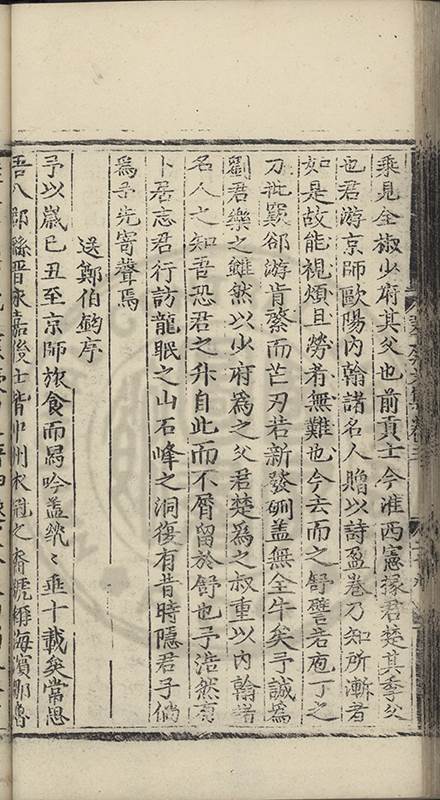 乘見全椒少府其父也前貢士今淮西憲掾君楚其季父
也君游京師歐陽內翰諸名人贈以詩盈卷乃知所漸者
如是故能視煩且勞者無難也今去而之舒譬若庖丁之
刀批竅郤游肯綮而芒刃若新發硎盖無全牛矣予誠為
劉君樂之雖然以少府為之父君楚為之叔重以內翰諸
名人之知吾恐君之升自此而不屑留於舒也予浩然有
卜居志君行訪龍眠之山石峰之洞復有昔時隱君子倘
為予先寄聲焉
送鄭伯鈞序
予以歲已丑至京師旅食而噣吟盖歘歘垂十載矣常思
吾八郡繇晉永嘉後士皆中州衣冠之裔號稱海濱鄒魯